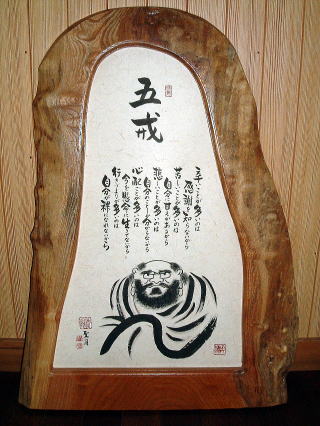 五戒
辛いことが多いのは
感謝を知らないから
苦しいことが多いのは
自分に甘えがあるから
悲しいことが多いのは
自分のことしか分からないから
心配ことが多いのは
今を懸命に生きてないから
行きづまりが多いのは
自分が裸になれないから